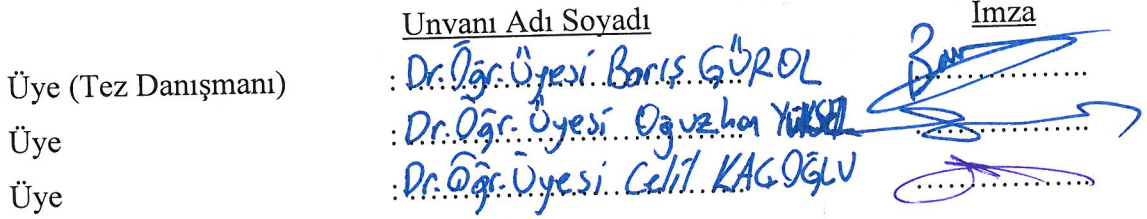 Unvanı Adı Soyadı İmza
Üye (Tez Danışmanı) : Dr. Öğr. Üyesi Barış GÜROL
Üye : Dr. Öğr. Üyesi Oğuzhan YÜKSEL
Üye : Dr. Öğr. Üyesi Celil KAÇOĞLU